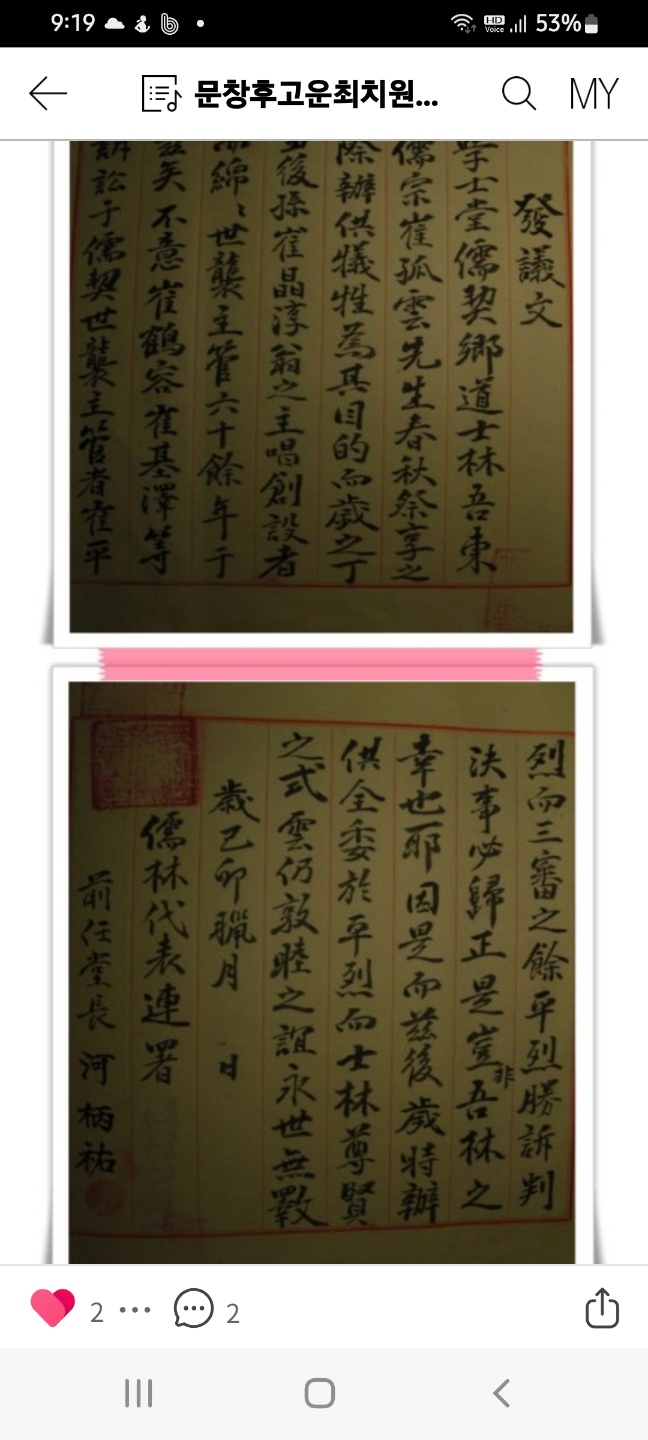 9:19
HD
Voice
53%
문창후고운최치원...
MY
發議文
學士堂儒契鄉道士林吾東
儒宗崔孤雲先生春秋祭享之
際辦供犧牲為其目的而歲之丁
後孫崔晶淳翁之主唱創設者
綿〻世襲主管六十餘年于
玆矣不意崔鶴容崔基澤等
訴訟于儒契世襲主管者崔平
烈而三審之餘平烈勝訴判
決事必歸正是豈非吾林之
幸也耶因是而玆後歲時辦
供全委於平烈而士林尊賢
之式雲仍敦睦之誼永世無斁
歲己卯臘月 日
儒林代表連署
前任堂長 河炳祐
2
2